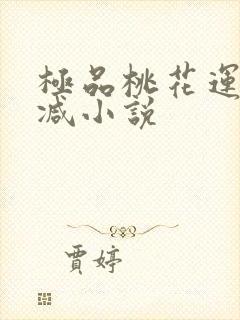 極品桃花運
减小說
賈婷